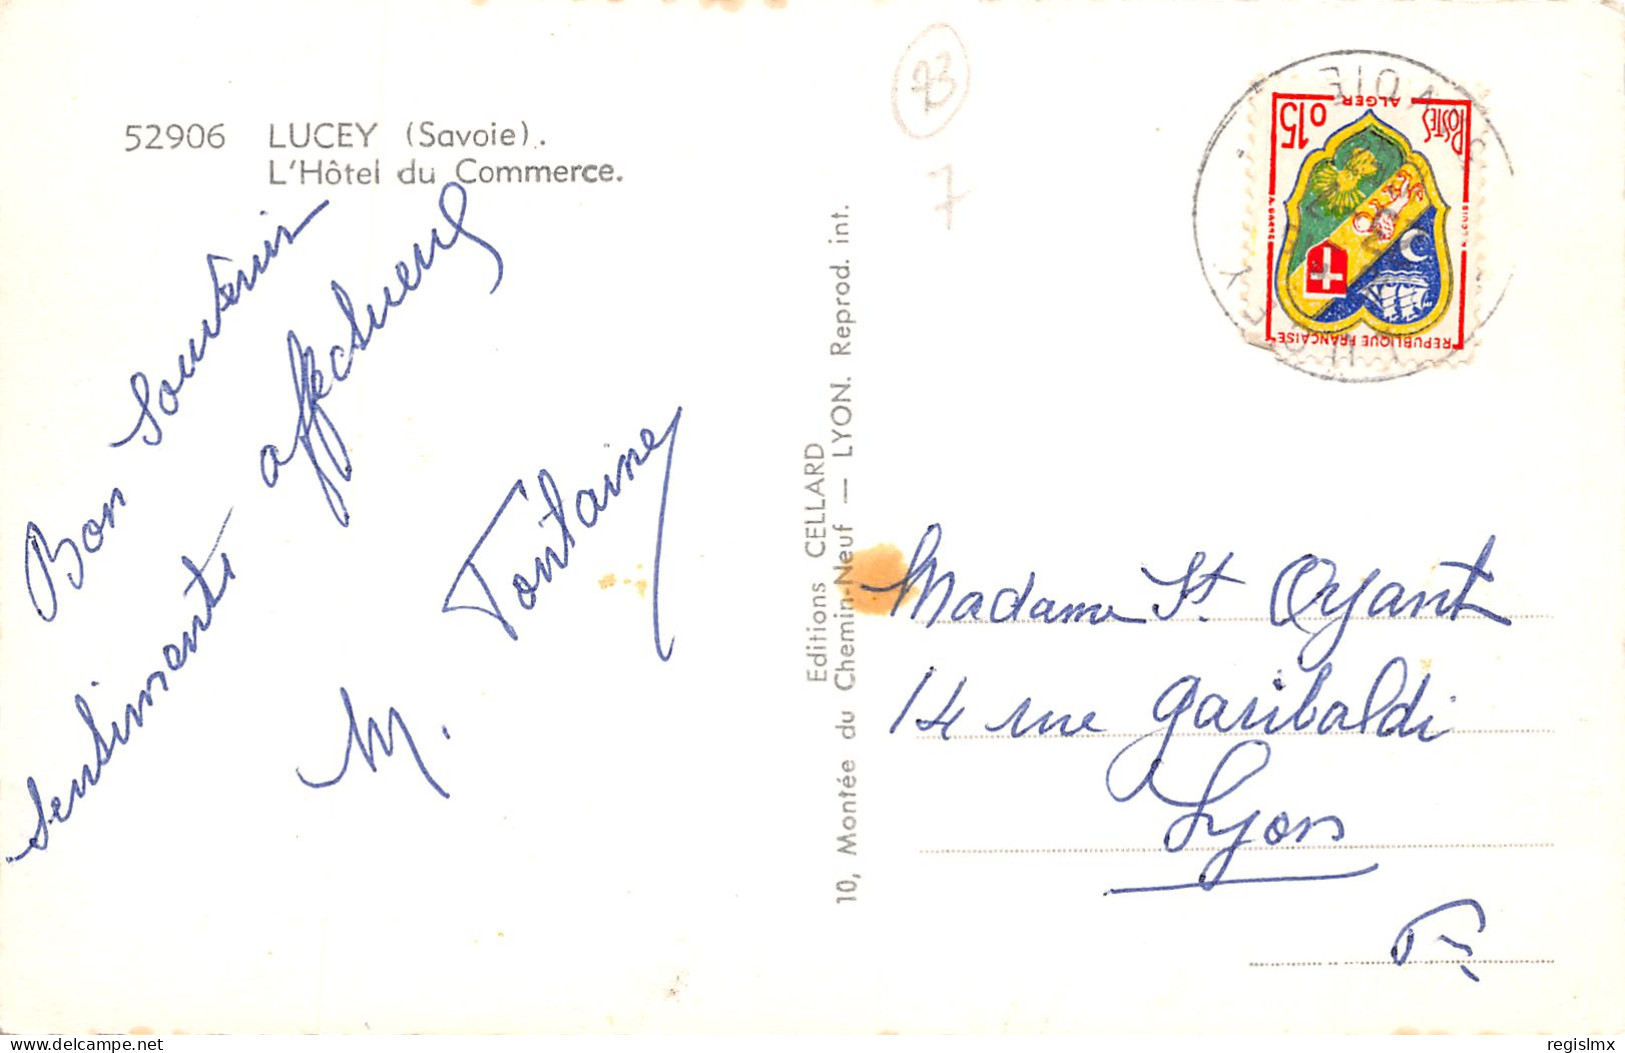 52906 LUCEY (Savoie).
L'Hôtel du Commerce.
Bon Souvenir
sentiments affectueux
M. Fontaine
Editions CELLARD
10, Montée du Chemin-Neuf — LYON. Reprod. int.
73
7
0,15 POSTES
ALGER
REPUBLIQUE FRANÇAISE
Madame St. Oyant
14 rue Garibaldi
Lyon
delcampe.net
regislmx